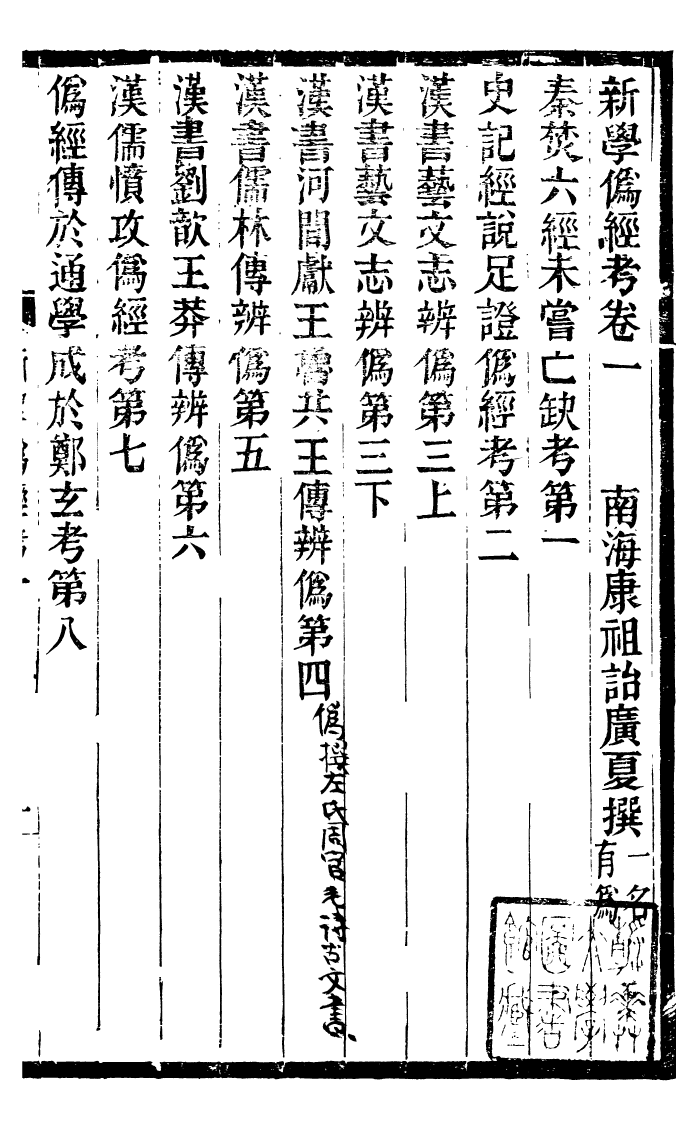 新學僞經考卷一　南海康祖詒廣夏撰一名有為
秦焚六經未嘗亡缺考第一
史記經說足證僞經考第二
漢書藝文志辨僞第三上
漢書藝文志辨僞第三下
漢書河間獻王魯共王傳辨僞第四僞撰左氏周官毛詩古文書
漢書儒林傳辨僞第五
漢書劉歆王莽傳辨僞第六
漢儒憤攻僞經考第七
僞經傳於通學成於鄭玄考第八